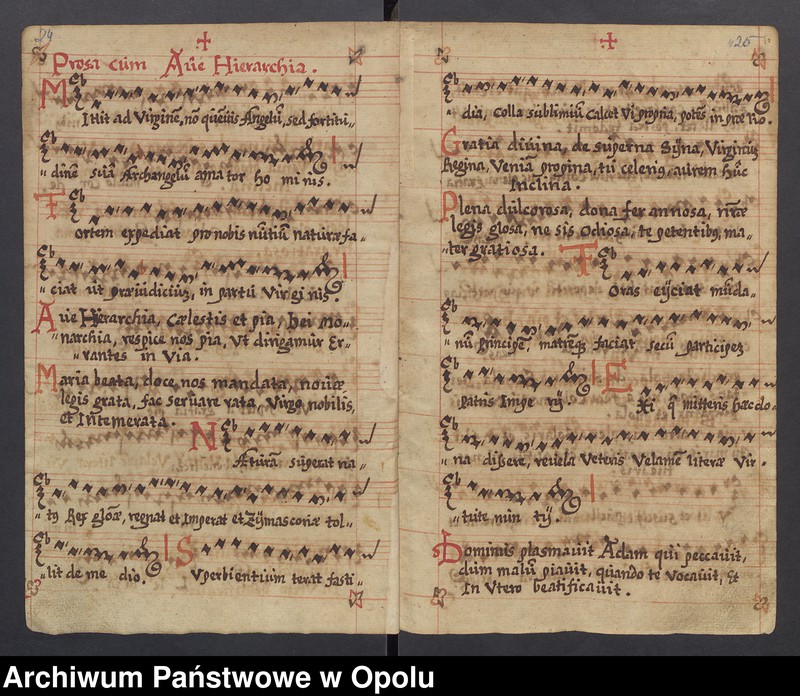 24
Prosa cum Aue Hierarchia.
Mittit ad Virginē, nō quēuis Angelū, sed fortitu„
„dinē suā Archangelū amator hominis.
Fortem expediat pro nobis nūtiū naturæ fa„
„ciat ut præiudiciū, in partu Virginis.
Aue Hierarchia, Cælestis et pia, Dei Mo„
„narchia, respice nos pia, Vt dirigamur Er„
„rantes in Via.
Maria beata, doce nos mandata, nouæ
legis grata, fac seruare rata, Virgo nobilis,
et Intemerata.
Naturā superat na„
„tg Rex glōæ, regnat et Imperat et Zÿmas coriæ tol„
„lit de medio. Superbientium terat fasti„
25
„dia, colla sublimiū Calcet Vi propria, potēs in prælio.
Gratia diuina, de superna Syna, Virginū
Regina, Veniā propina, tū celeriq, aurem hūc
Inclina.
Plena dulcorosa, dona fer annosa, nr̄æ
legis glosa, ne sis Odiosa, te petentibq, ma„
„ter gratiosa.
Foras eÿciat mūda„
„nū Principē, matreqꝫ faciat secū participeꝫ
patris Imperÿ.
Exi q̄ mitteris hæc do„
„na dißere, reuela Veteris Velamē literæ Vir„
„tute muntÿ.
Dominus plasmauit Adam qui peccauit,
dum malū piauit, quando te Vocauit, Et
In Vtero beatificauit.
Archiwum Państwowe w Opolu